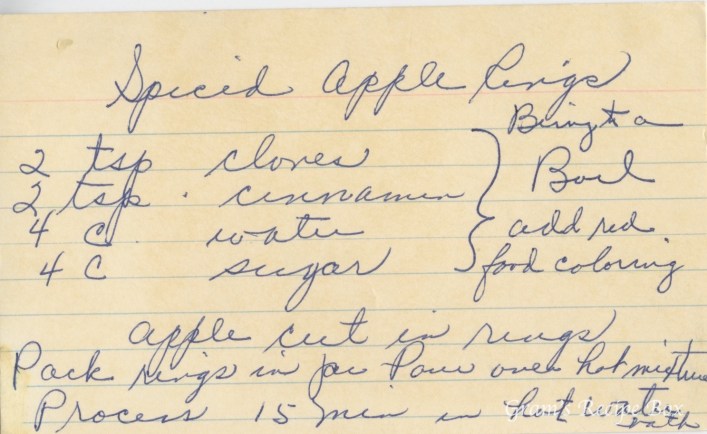 Spiced Apple Rings
2 tsp cloves
2 tsp. cinnamin
4 C. water
4 C sugar
Bring to a
Boil
add red
food coloring
apple cut in rings
Pack rings in jar Pour over hot mixture
Process 15 min in hot water
bath
Gram's Recipe Box